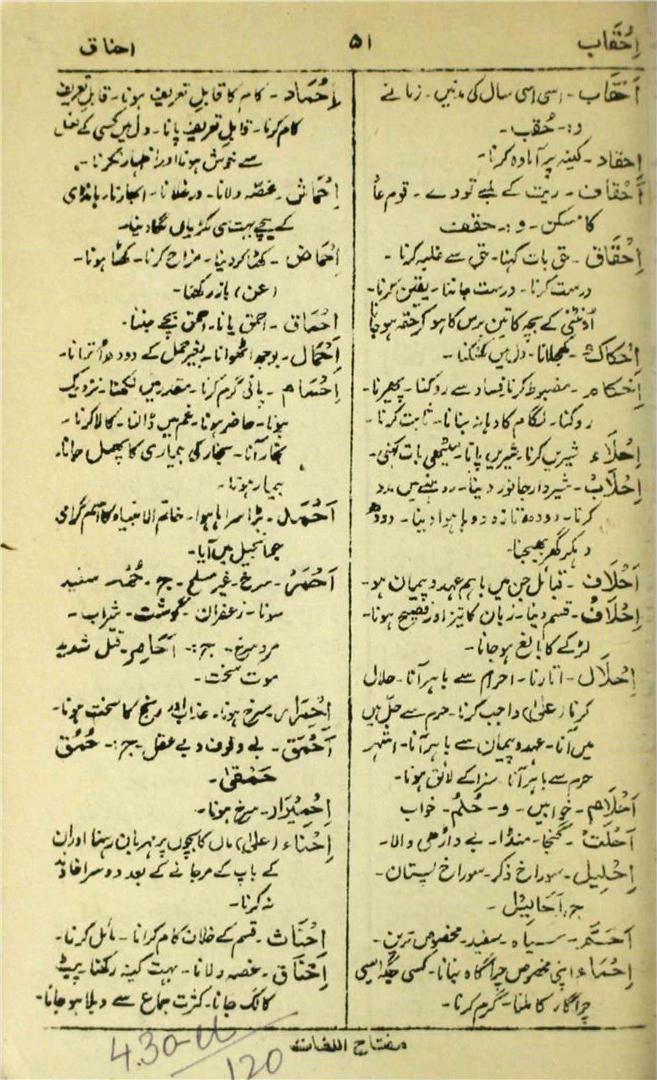 اِحْقَاب
۵۱
احناق
اَحْقَاب۔ اسی اسی سال کی مدتیں۔ زمانے
و:۔ حُقب۔
اِحقاد۔ کینہ پر آمادہ کرنا۔
اَحْقَاف۔ ریت کے لمبے تودے۔ قوم عاد
کا مسکن۔ و:۔ حقف
اِحْقَاق۔ حق بات کہنا۔ حق سے غلبہ کرنا۔
درست کرنا۔ درست جاننا۔ یقین کرنا۔
اونٹنی کے بچہ کا تین برس کا ہو کر حقہ ہوجانا
اِحْکاک۔ کھجلانا۔ دل میں کھٹکنا۔
اِحْکام۔ مضبوط کرنا۔ فساد سے روکنا۔ پھیرنا۔
روکنا۔ لگام کا دہانہ بنانا۔ ثابت کرنا۔
اِحْلَاء شیریں کرنا۔ شیریں پانا۔ میٹھی بات کہنی۔
اِحْلَاب۔ شیردار جانور دینا۔ دوہنے میں مدد
کرنا۔ دودھ تازہ دوہا ہوا دینا۔ دودھ
دوہکر گھر بھیجنا۔
اَحْلَاف۔ قبائل جن میں باہم عہد و پیمان ہو۔
اِحْلَاف۔ قسم دینا۔ زبان کا تیز اور فصیح ہونا۔
لڑکے کا بالغ ہو جانا۔
اِحْلَال۔ اتارنا۔ احرام سے باہر آنا۔ حلال
کرنا (علیٰ) واجب کرنا۔ حرم سے حلّ میں
میں آنا۔ عہد و پیمان سے باہر آنا۔ اشہر
حرم سے باہر آنا۔ سزا کے لائق ہونا۔
اَحْلَام۔ خوابیں۔ و۔ حُلْمٌ۔ خواب
اَحْلَتْ۔ گنجا۔ منڈا۔ بے داڑھی والا۔
اِحْلِیل۔ سوراخ ذکر۔ سوراخ پستان۔
ج: اَحَالِیْل۔
اَحَمّ۔ سیاہ۔ سفید۔ مخصوص ترین۔
اِحْمَاء اپنی مخصوص چراگاہ بنانا۔ کسی جگہ ایسی
چراگاہ کا ملنا۔ گرم کرنا۔
اِحْمَاد۔ کام کا قابل تعریف ہونا۔ قابل تعریف
کام کرنا۔ قابل تعریف پانا۔ دل میں کسی کے فعل
سے خوش ہونا اور اظہار نکرنا۔
اِحْمَاش۔ غصہ دلانا۔ ورغلانا۔ ابھارنا۔ ہانڈی
کے نیچے بہت سی لکڑیاں لگا دینا۔
اِحْمَاض۔ کھٹا کر دینا۔ مزاح کرنا۔ کھٹا ہونا۔
(عن) باز رکھنا۔
اِحْمَاق۔ احمق پانا۔ احمق بچے جننا۔
اِحْمَال۔ بوجھ اٹھوانا۔ بغیر حمل کے دودھ اُترآنا۔
اِحْمَام۔ پانی گرم کرنا۔ مقدر میں لکھنا۔ نزدیک
ہونا۔ حاضر ہونا۔ غم میں ڈالنا۔ کالا کرنا۔
بخار آنا۔ بخار کی بیماری کا پھیل جانا۔
بیمار ہونا۔
اَحْمَد۔ بڑا سراہا ہوا۔ خاتم الانبیاء کا اسم گرامی
جو انجیل میں آیا۔
اَحْمَرُ۔ سرخ۔ غیر مسلح۔ ج۔ حُمُر سفید
سونا۔ زعفران۔ گوشت۔ شراب۔
مرد سرخ۔ ج:۔ اَحَامِر۔ قتل شدید
موت سخت۔
اِحْمِرَار سرخ ہونا۔ عذاب اور رنج کا سخت ہونا۔
اَحْمَق۔ بے وقوف و بے عقل۔ ج:۔ حُمُق
حَمْقیٰ۔
اِحْمِیْرَار۔ سرخ ہونا۔
اِحْنَاء (علیٰ) ماں کا بچوں پر مہربان رہنا اور ان
کے باپ کے مرجانے کے بعد دوسرا خاوند
نہ کرنا۔
اِحْنَاث۔ قسم کے خلاف کام کرانا۔ مائل کرنا۔
اِحْنَاق۔ غصہ دلانا۔ بہت کینہ رکھنا۔ پیٹ
کا لگ جانا۔ کثرت جماع سے دبلا ہوجانا۔
مفتاح اللغات
120